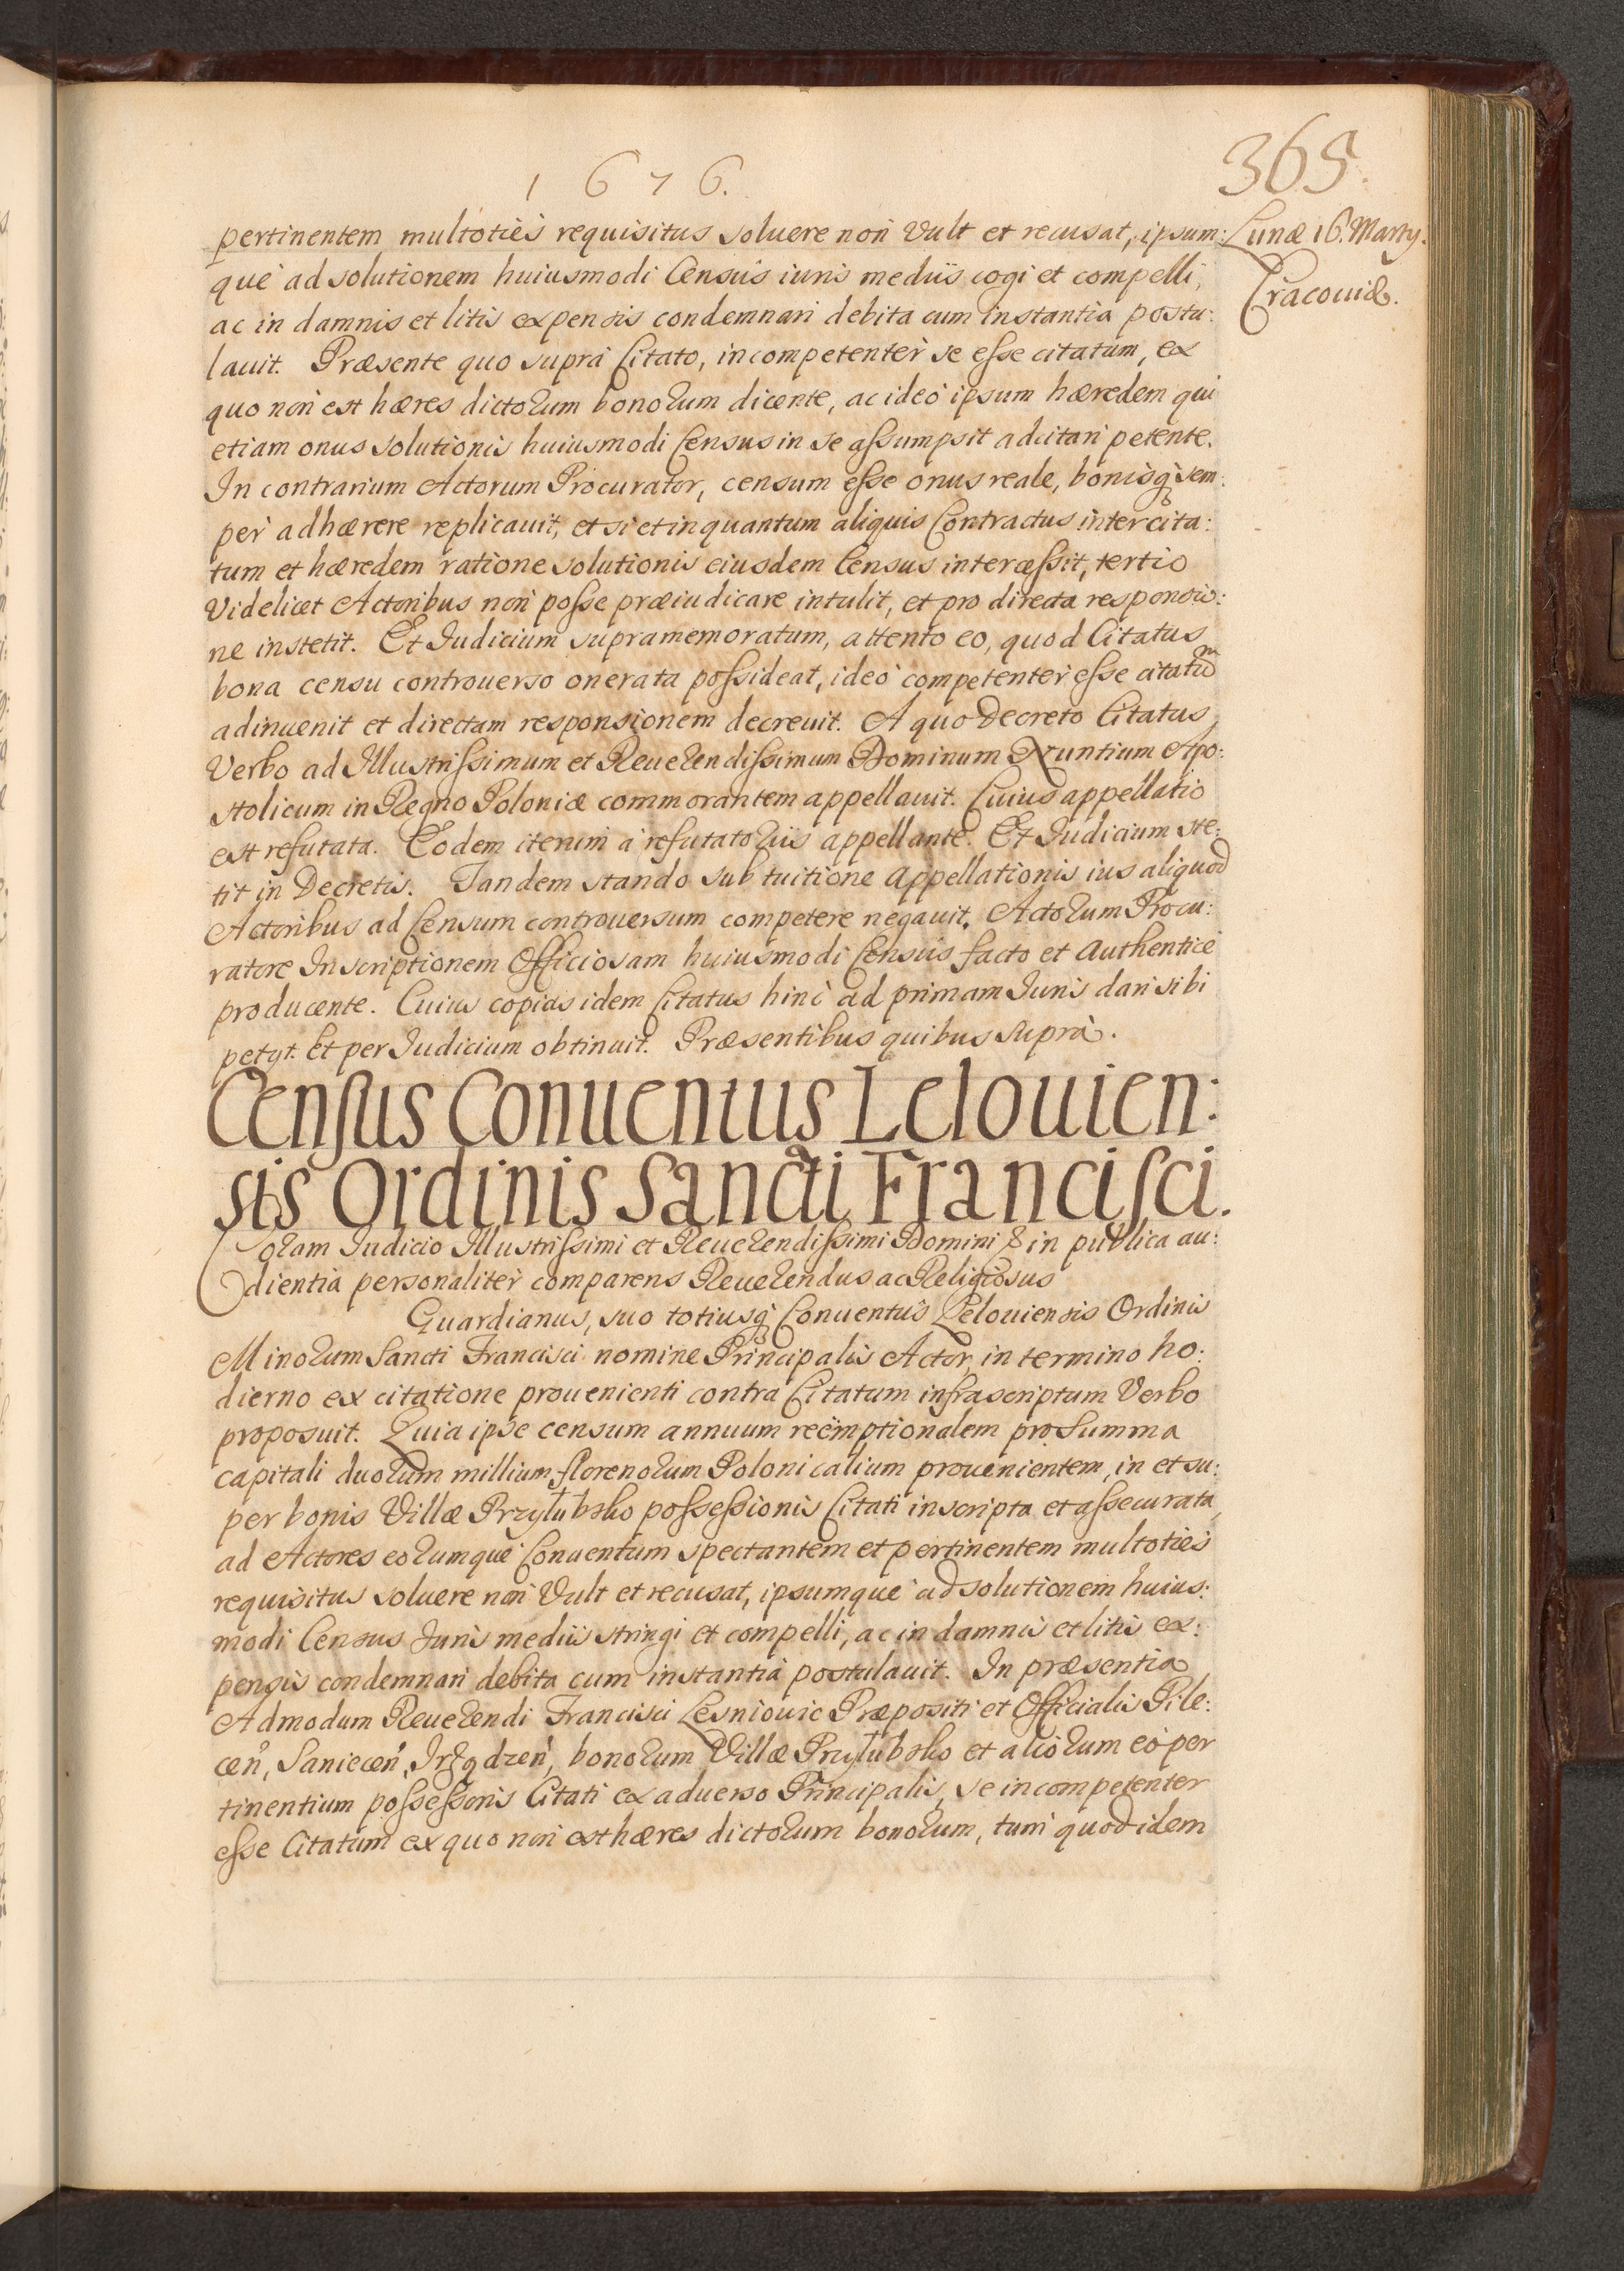 1676.
365.
Lunæ 16. Marty.
Cracouiæ.
pertinentem multoties requisitus soluere non vult et recusat, ipsum:
què ad solutionem huiusmodi Censûs iuris mediis cogi et compelli,
ac in damnis et litis expensis condemnari debita cum instantia postu:
lauit. Præsente quo suprà Citato, incompetenter se esse citatum, ex
quo non est hæres dictorum bonorum dicente, ac ideò ipsum hæredem qui
etiam onus solutionis huiusmodi Census in se assumpsit adcitari petente.
In contrarium Actorum Procurator, censum esse onus reale, bonisq; sem:
per adhærere replicauit, et si et inquantum aliquis Contractus inter cita:
tum et hæredem ratione solutionis eiusdem Census interceßit, tertio
videlicet Actoribus non posse præiudicare intulit, et pro directa responsio:
ne institit. Et Iudicium supramemoratum, attento eo, quod Citatus
bona censu controuerso onerata possideat, ideò competenter esse citatum
adinuenit et directam responsionem decreuit. A quo Decreto Citatus
Verbo ad Illustrissimum et Reuerendissimum Dominum Nuntium Apo:
stolicum in Regno Poloniæ commorantem appellauit. Cuius appellatio
est refutata. Eodem iterum à refutatoriis appellante. Et Iudicium ste:
tit in Decretis. Tandem stando sub tuitione appellationis ius aliquod
Actoribus ad Censum controuersum competere negauit. Actorum Procu:
ratore Inscriptionem Officiosam huiusmodi Censûs facto et authenticè
producente. Cuius copias idem Citatus hinc ad primam Iuris dari sibi
petyt. Et per Iudicium obtinuit. Præsentibus quibus suprà.
Census Conuentus Lelouien:
sis Ordinis Sancti Francisci.
Coram Iudicio Illustrissimi et Reuerendissimi Domini & in publica au:
dientia personaliter comparens Reuerendus ac Religiosus
Guardianus, suo totiusq; Conuentus Lelouiensis Ordinis
Minorum Sancti Francisci nomine Principalis Actor, in termino ho:
dierno ex citatione prouenienti contra Citatum infrascriptum Verbo
proposuit. Quia ipse censum annuum reëmptionalem pro Summa
capitali duorum millium florenorum Polonicalium prouenientem, in et su:
per bonis Villæ Przyłubsko possessionis Citati inscripta et assecurata,
ad Actores eorumquè Conuentum spectantem et pertinentem multoties
requisitus soluere non vult et recusat, ipsumquè ad solutionem huius:
modi Census Iuris mediis stringi et compelli, ac in damnis et litis ex:
pensis condemnari debita cum instantia postulauit. In præsentia
Admodum Reuerendi Francisci Lesniouic Præpositi et Officialis Pile:
cen, Saniecen, Irządzen, bonorum Villæ Przyłubsko et aliorum eò per
tinentium possessoris Citati ex aduerso Principalis, se incompetenter
esse Citatum ex quo non est hæres dictorum bonorum, tum quod idem